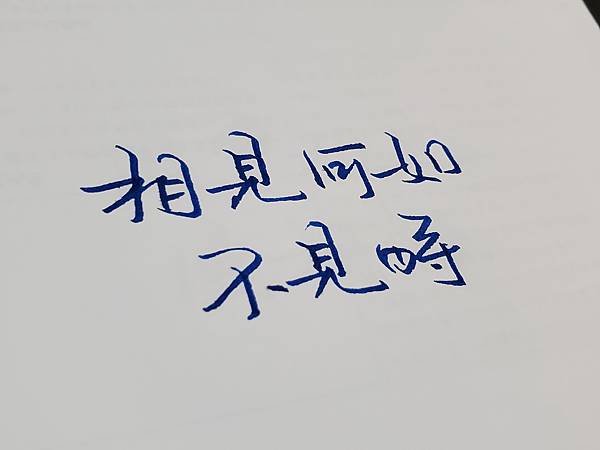 相見何如
不見時